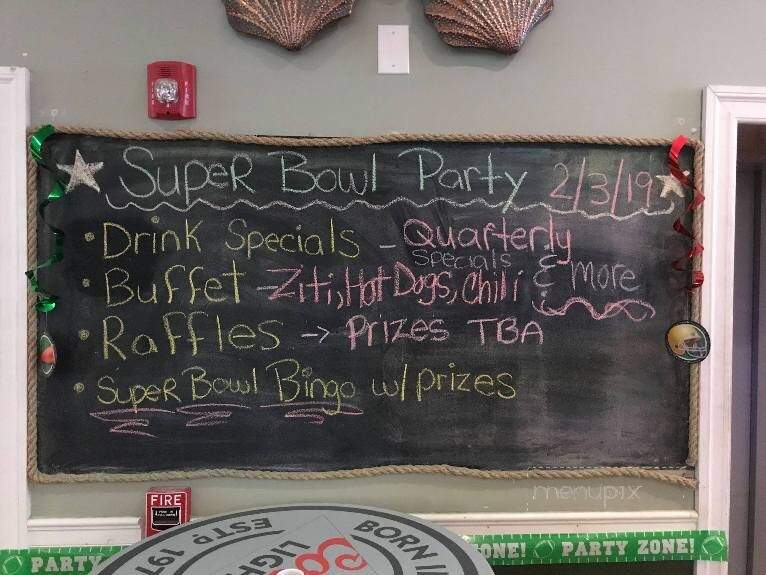 Super Bowl Party 2/3/19
• Drink Specials - Quarterly Specials
• Buffet - Ziti, Hot Dogs, Chili & More
• Raffles -> Prizes TBA
• Super Bowl Bingo w/ prizes
menupix
FIRE
ESTD 197
BORN I
CO
LIGH
PARTY
ONE! PARTY ZONE!